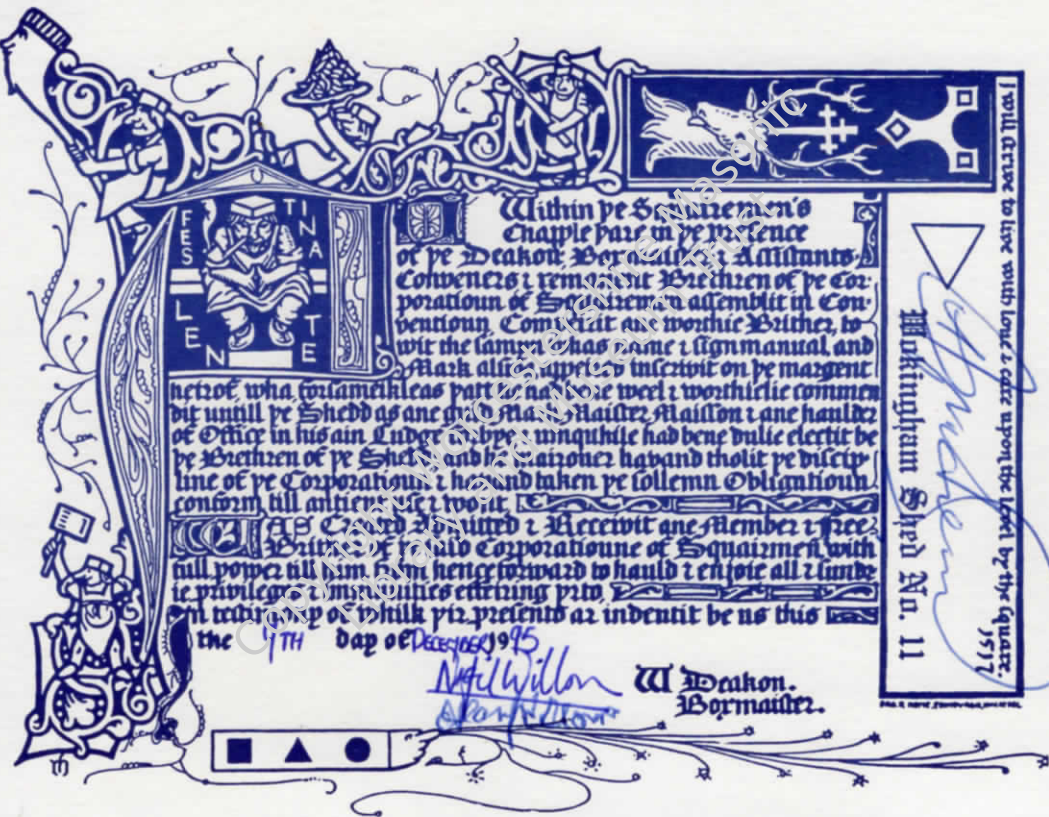 FES TINA
LEN TE
Within ye Squairemen's
Chapple hare in ye presence
of ye Deakon, Boxmaister & Assistants,
Conveners & remanent Brethren of ye Cor-
poratioun of Squairemen assemblit in Con-
ventioun, Comperit ane worthie Brither, to
wit the samen whas name & signmanual, and
Mark alsu appeles inscrivit on ye margent
heirof, wha forsameikleas patt nane weel & worthielie commen
dit untill ye Shedd as ane gud Mark Maister Maisson & ane haulder
of Office in his ain Ludge & umquhile had bene dulie electit be
ye Brethren of ye Shedd and havand tholit ye discip
line of ye Corporatioun & havand taken ye sollemn Obligatioun
conform till antient use & wont,
WAS Created Admitted & Receivit ane Member & free
Brither of Corporatioune of Squairmen, with
full power till him frem hence forward to hauld & enjoie all & sundr
ie privileges & immunities effeiring yrto,
In testimony of whilk yir presents ar indentit be us this
the 7TH day of DECEMBER 1995
Neil Willon
W Deakon.
Boxmaister.
I will strive to live with love & care upon the level by the square.
1517
Wokingham Shed No. 11